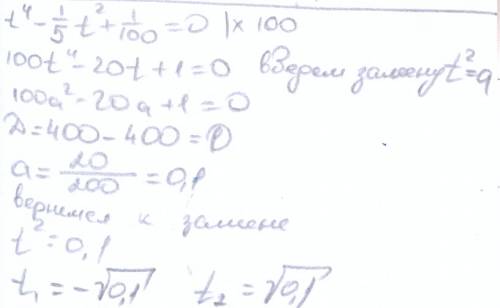 t⁴ - 1/5 t² + 1/100 = 0 | × 100
100t⁴ - 20t + 1 = 0 введем замену t² = a
100a² - 20a + 1 = 0
D = 400 - 400 = 0
a = 20/200 = 0,1
вернемся к замене
t² = 0,1
t₁ = -√0,1 t₂ = √0,1